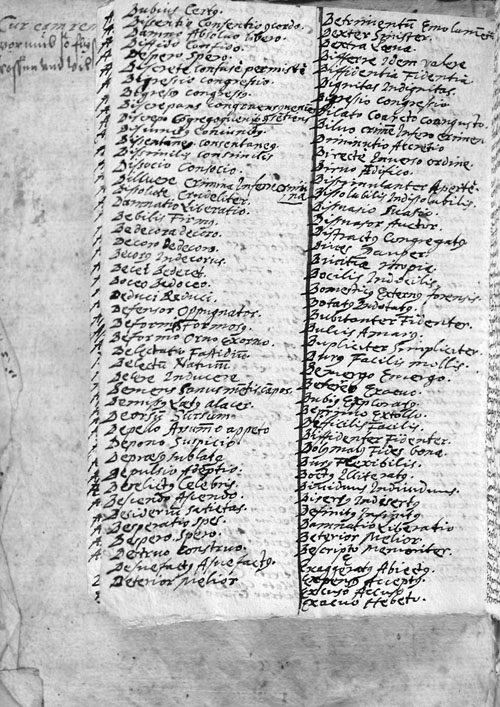 Dubius Certus.
Dissentio Consentio, co[n]cordo.
Damno Absoluo libero.
Diffido Confido.
Despero Spero.
Discrete confuse permistè
Digressio congressio.
Digressio congressio.
Discrepans congruens
Disiunctus Coniunctus.
Dissentaneus consentaneus.
Dissimilis consimilis
Dissocio Consocio.
Diluere Crimina Inferre crimina
Dissolute Crudeliter.
Damnatio Liberatio.
Debilis Firmus.
Dedecora decora.
Decoro Dedecoro.
Decorus Indecorus.
Decet Dedecet.
Doceo Dedoceo.
Deduci Reduci.
Defensor Oppugnator.
Deformis Formosus.
Deformo Orno Exorno.
Delectatio Fastidium
Delere Inducere
Demens Sanus mentis capos.
Demissus Elatus alacer.
Deorsum Sursum.
Depello Assumo appeto
Depono Suspicio
Depressus sublatus
Depulsio Adeptio.
Derelictus Celebris.
Descendo Ascendo.
Desiderium Satietas.
Desperatio Spes.
Despero. Spero.
Destruo Construo.
Desuefactus Assuefactus.
Deterior Melior
Detrimentum Emolumentum
Dexter Sinister.
Dextra Laeua.
Differre Idem valere
Diffidentia Fidentia
Dignitas Indignitas.
Digressio congressio
Dilato Coarcto coangusto.
Diluo crimen Infero crimen
Diminutio Accretio
Directe Inuerso ordine.
Diruo Aedifico.
Dissimulanter Aperte.
Dissolubilis Indissolubilis.
Dissuasio Suasio
Dissuasor Auctor.
Distractus Congregatus
Diues Pauper.
Diuitiae Inopia.
Docilis Indocilis
Domesticus Externus forensis.
Dotatus Indotatus.
Dubitanter Fidenter.
Dulcis Amarus.
Dupliciter Simpliciter.
Durus Facilis mollis.
Demergo Emergo.
Deprimo Extollo.
Difficilis Facilis.
Diffidenter Fidenter.
Dolus malus Fides bona.
Durus Flexibilis.
Doctus Illiteratus.
Diuiduus Indiuiduus.
Disertus Indisertus
Definitus Infinitus
Damnatio Liberatio
Deterior Melior.
Descripto Memoriter.
Exaggeratus Abiectus.
Expensus Acceptus.
Excuso Accuso
Exacuo Hebeto.